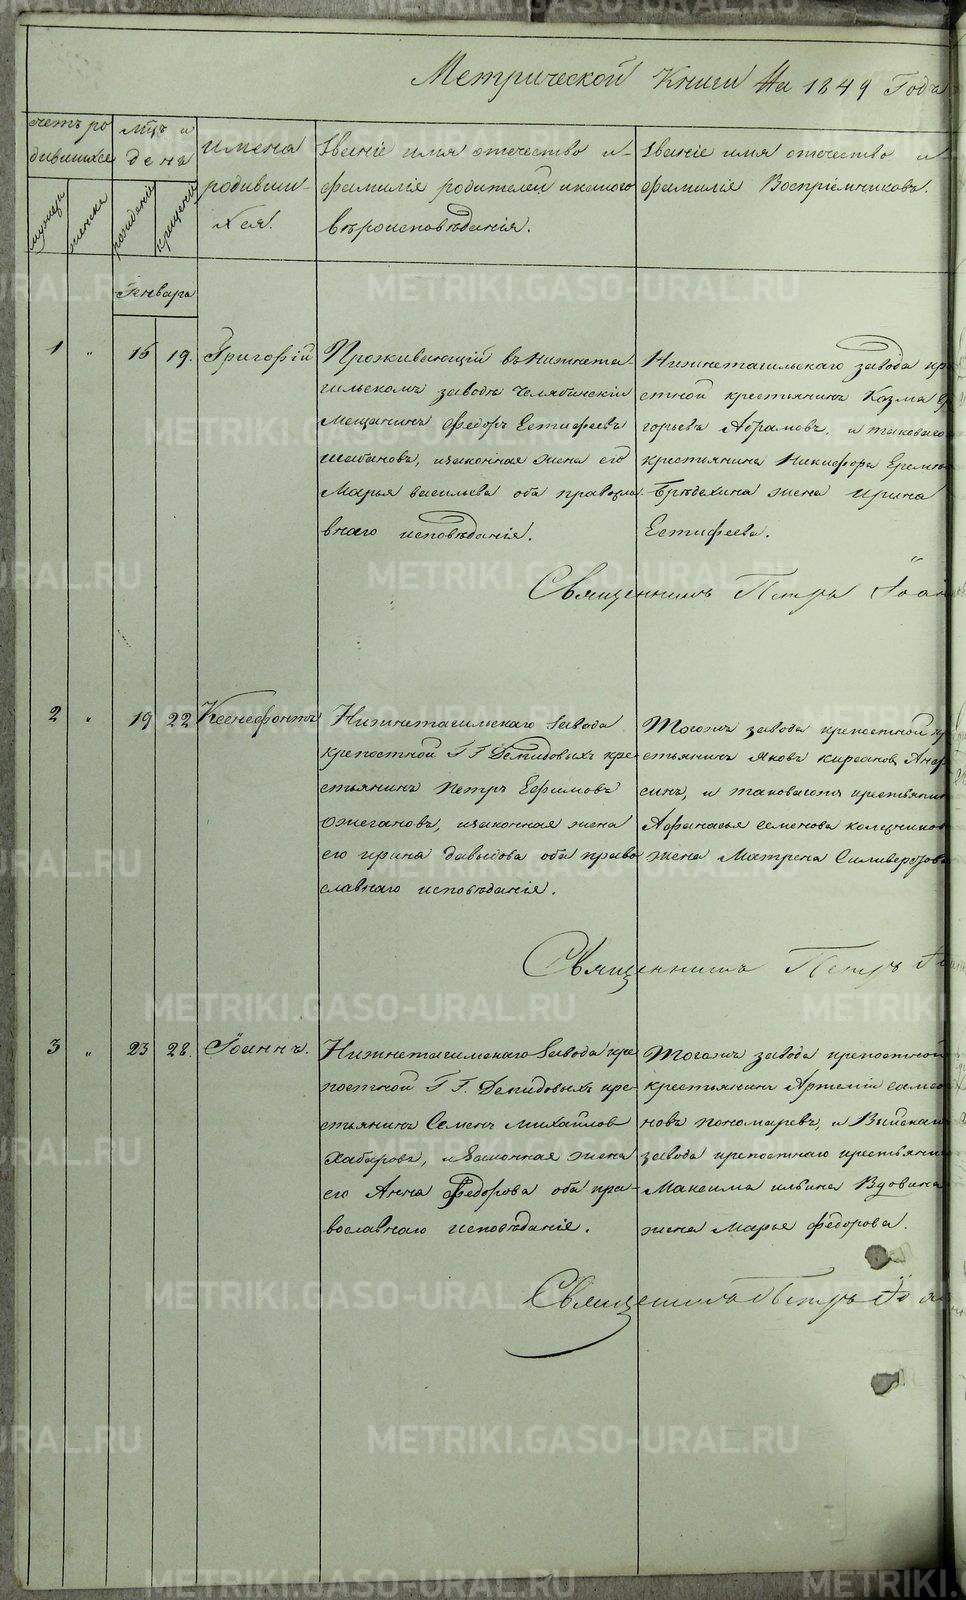 Метрической Книги На 1849 Года
счетъ ро
дившихся
мужеска
женска
мѣцъ и
день
рожденія
крещенія
имена
родивши-
хся.
Званіе имя отечество и
фамилія родителей и какого
вѣроисповѣданія.
Званіе имя отечество и
фамилія Воспріемниковъ.
Января
1 " 15 19. Григорій
Проживающій въ Нижнета-
гильскомъ заводѣ Челябинскій
Мещанинъ Федоръ Естифеевъ
Шабановъ, и законная жена его
Марья васильева оба правосла-
внаго исповѣданія.
Нижнетагильскаго завода кре
стной крестьянинъ Козма
горьевъ Абрамовъ, и таковаго
крестьянина Никифора Еремѣ
жена ирина
Естифеева.
Священникъ Петръ
2 " 19 22 Ксенефонтъ
Нижнетагильскаго завода
крепостной Г Г Демидовыхъ кре-
стьянинъ Петръ Ефимовъ
Ожегановъ, и законная жена
его ирина давыдова оба право
славнаго исповѣданія.
Тогожъ завода крепостной кр
стьянинъ Яковъ кирсановъ
синъ, и таковагожъ крестьянин
Афанасья семенова
жена Матрена Силиверстова
Священникъ Петръ
3 " 23 28. Іоаннъ.
Нижнетагильскаго Завода кре
постной Г Г. Демидовыхъ кре-
стьянинъ Семенъ Михайлов
Хабаровъ, и Законная жена
его Анна Федорова оба пра-
вославнаго исповѣданія.
Тогожъ завода крепостной
крестьянинъ Артемій самсо
новъ пономаревъ, и Выйскаго
завода крепостнаго крестьяни
Максима ильина Вдовина
жена Марья федорова.
Священникъ Петръ
METRIKI.GASO-URAL.RU